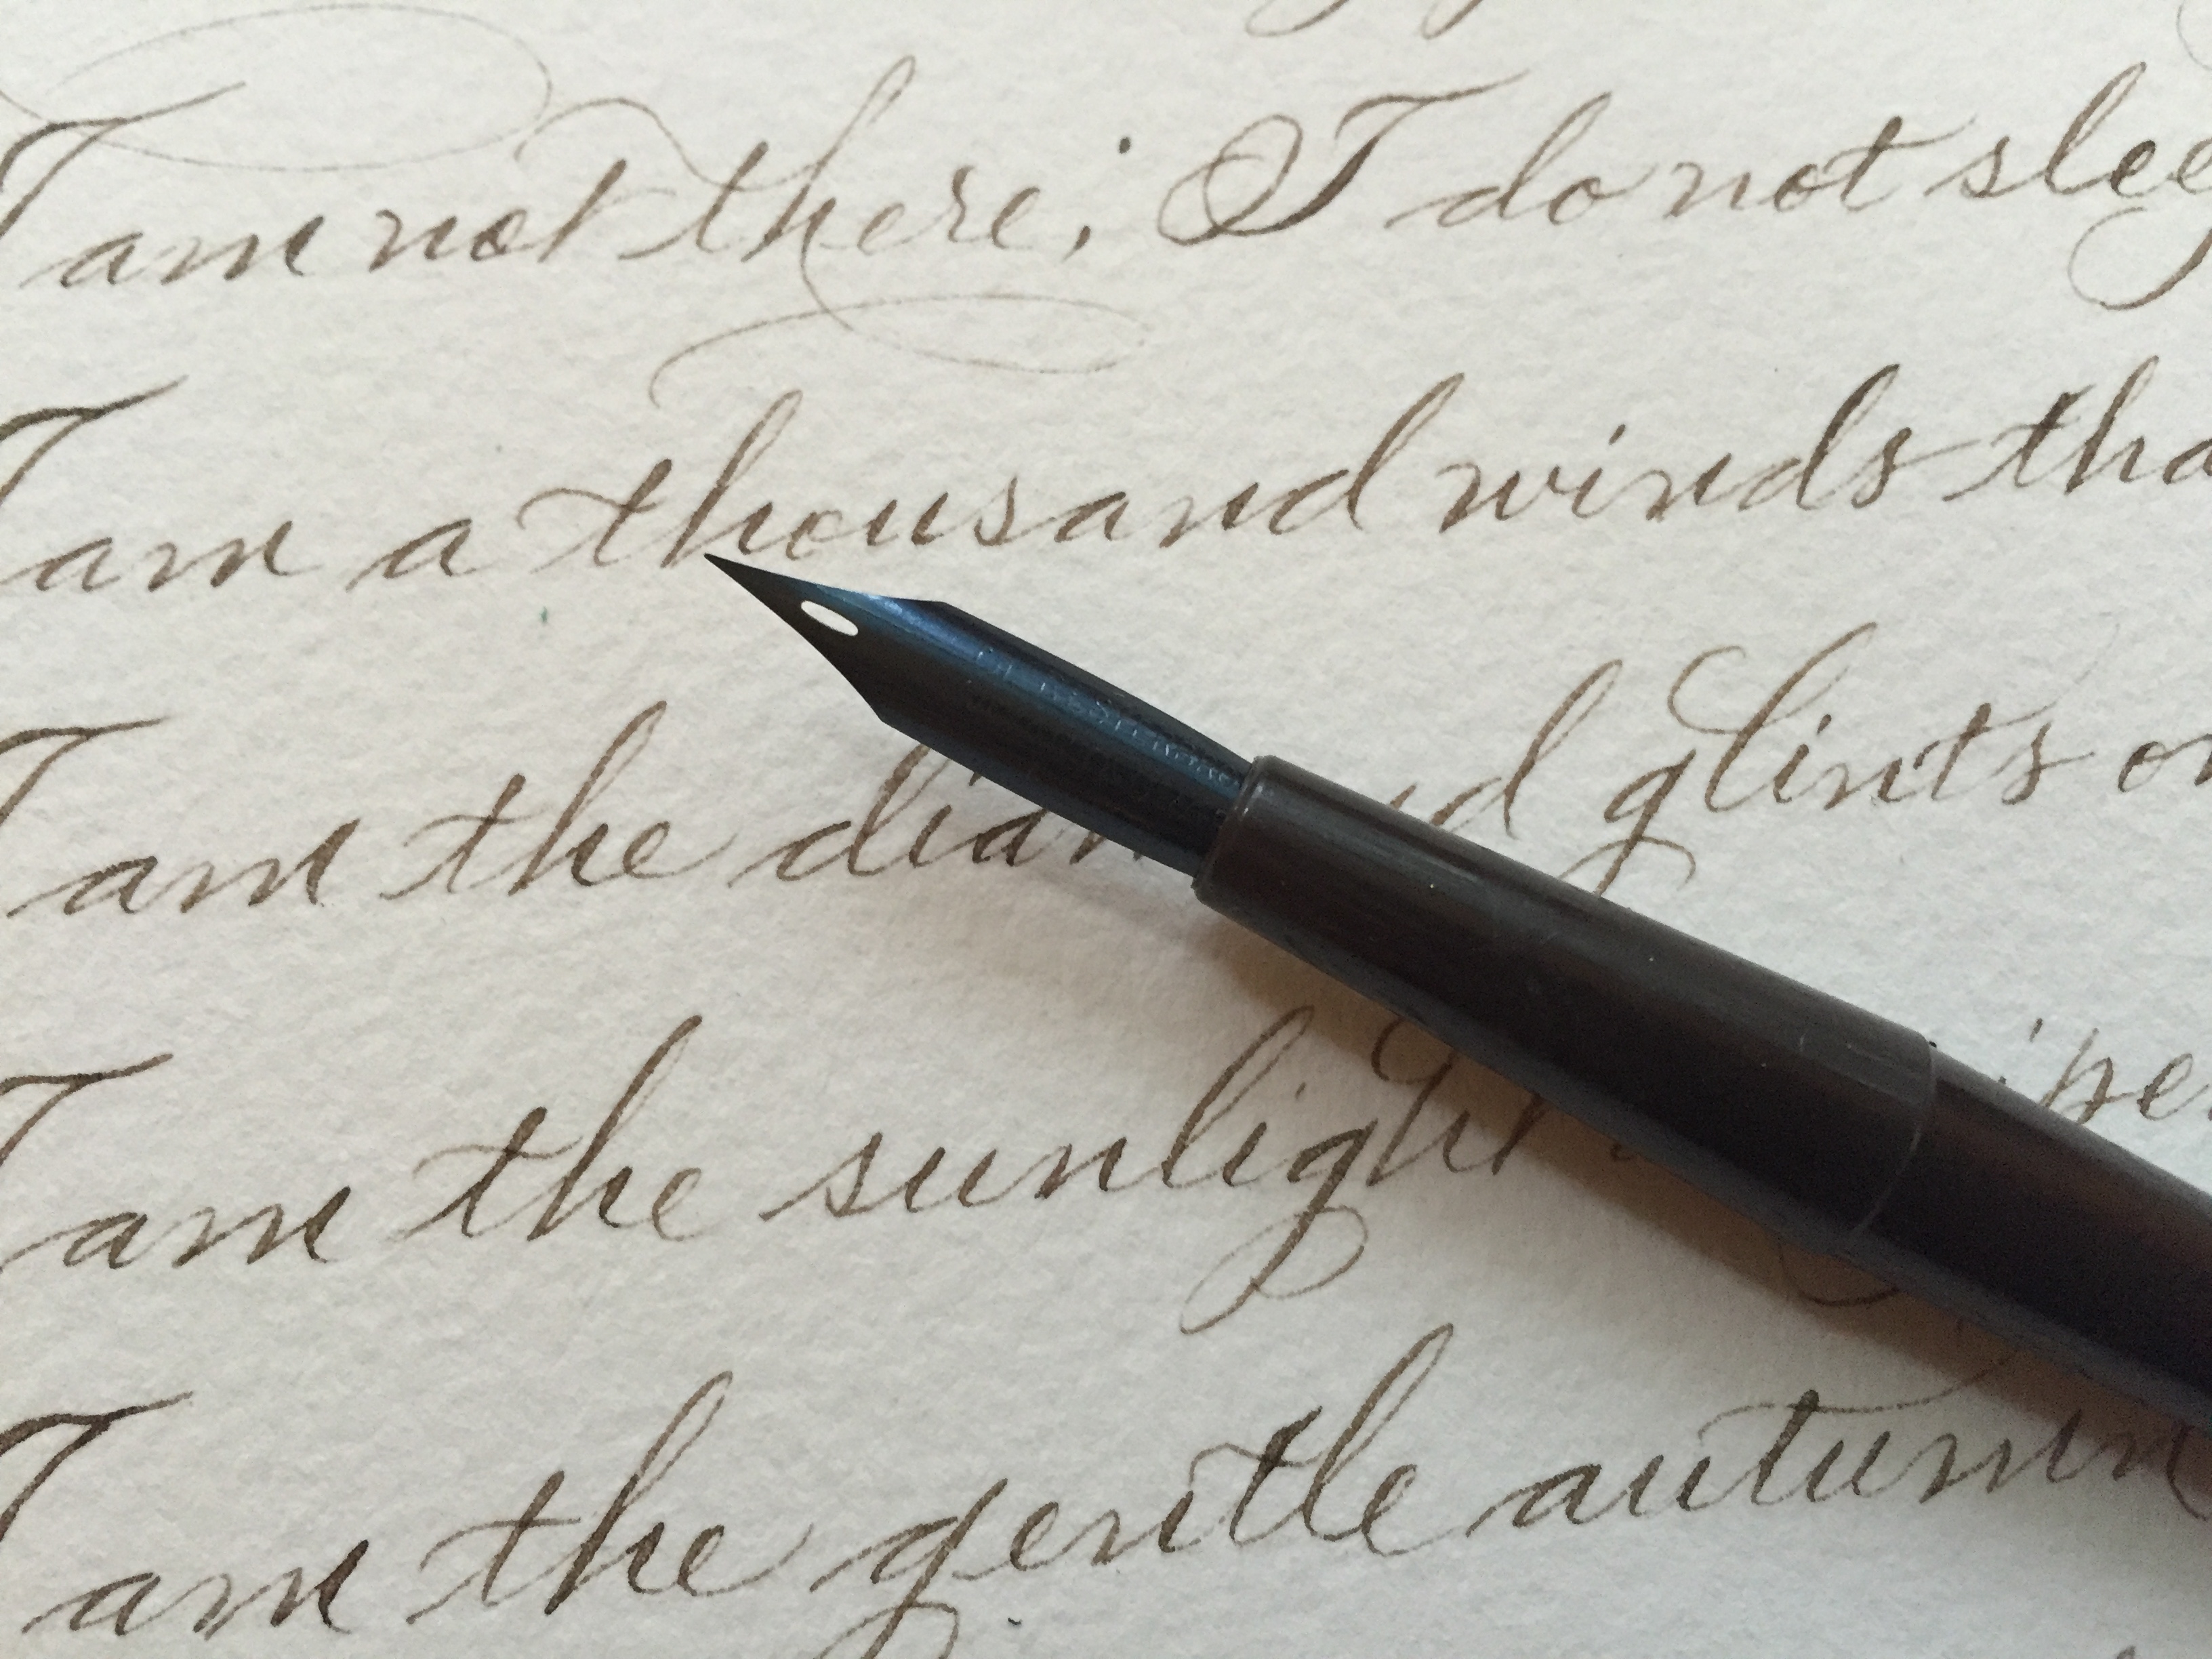 I am not there; I do not
I am a thousand winds
I am the glints
I am the sunlight
I am the gentle autumn